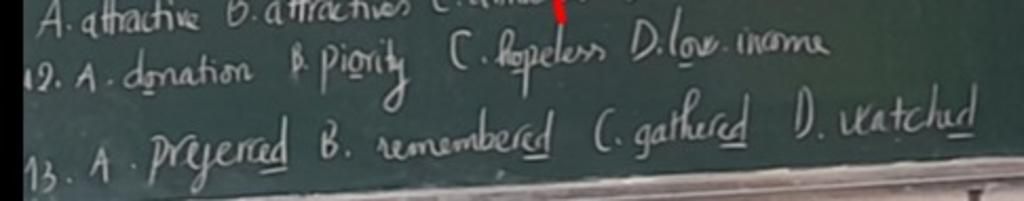 A. attractive B. attractives C.
12. A. donation B. piority C. hopeless D. low-income
13. A. preyered B. remembered C. gathered D. watched